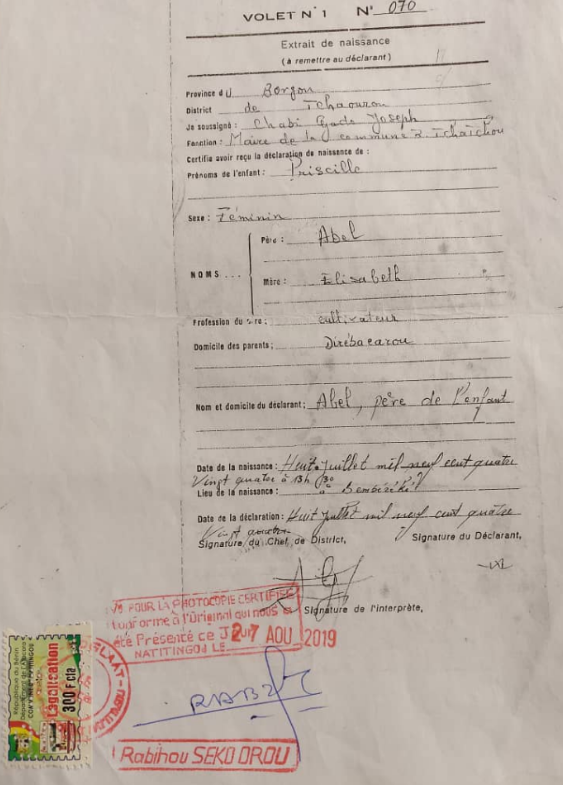 VOLET N° 1 N° 070
Extrait de naissance
(à remettre au déclarant)
Province dU Borgou
District de Tchaourou
Je soussigné : Chabi Gado Joseph
Fonction : Maire de la commune Tchatchou
Certifie avoir reçu la déclaration de naissance de :
Prénoms de l'enfant : Priscille
Sexe : Féminin
Père : Abel
NOMS . . .
Mère : Elisabeth
Profession du père : cultivateur
Domicile des parents :
Nom et domicile du déclarant : Abel, père de l'enfant
Date de la naissance : Huit Juillet mil neuf cent quatre
Vingt quatre à 13h 30
Lieu de la naissance : à Bembéréké
Date de la déclaration : Huit Juillet mil neuf cent quatre
Vingt quatre
Signature du Chef de District, Signature du Déclarant,
Signature de l'interprète,
VU POUR LA PHOTOCOPIE CERTIFIEE
Conforme à l'Original qui nous a
été Présenté ce Jour
27 AOU 2019
NATITINGOU LE
République du Bénin
Légalisation
300 Fcfa
Rabihou SEKO OROU